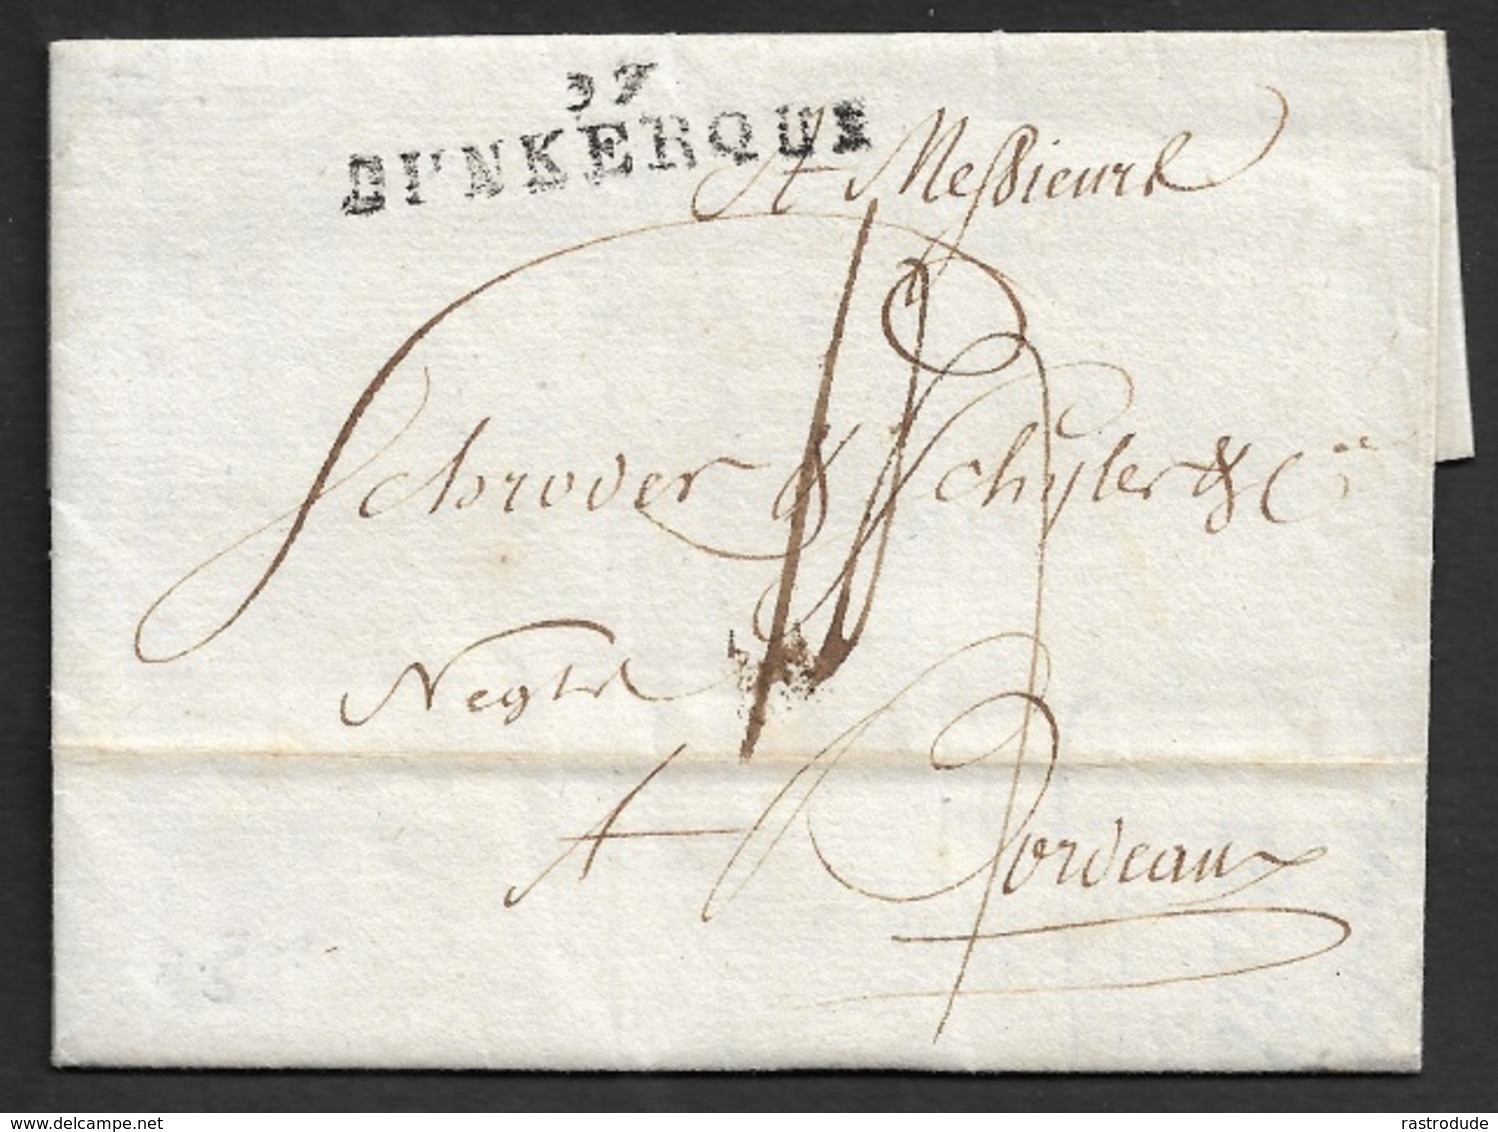 57
DUNKERQUE
A Messieurs
Schroder & Schyler & Cie
Negts
A Bordeaux
delcampe.net
rastrodude